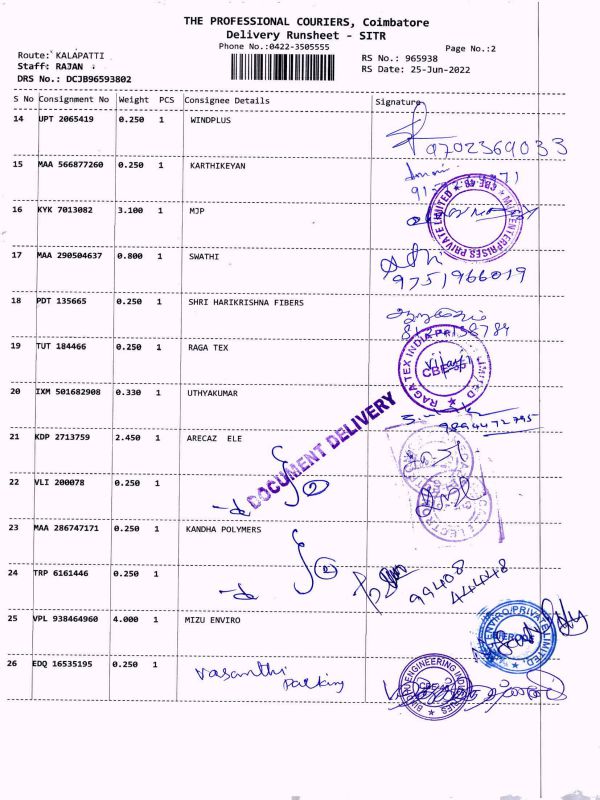 THE PROFESSIONAL COURIERS, Coimbatore
Delivery Runsheet - SITR
Phone No.:0422-3505555
Page No.:2
Route: KALAPATTI
Staff: RAJAN
DRS No.: DCJB96593802
RS No.: 965938
RS Date: 25-Jun-2022
S No Consignment No Weight PCS Consignee Details Signature
14 UPT 2065419 0.250 1 WINDPLUS
9702369033
15 MAA 566877260 0.250 1 KARTHIKEYAN
16 KYK 7013082 3.100 1 MJP
17 MAA 290504637 0.800 1 SWATHI
9751966019
18 PDT 135665 0.250 1 SHRI HARIKRISHNA FIBERS
19 TUT 184466 0.250 1 RAGA TEX
RAGATEX INDIA PRIVATE LIMITED
20 IXM 501682908 0.330 1 UTHYAKUMAR
9894472795
DOCUMENT DELIVERY
21 KDP 2713759 2.450 1 ARECAZ ELE
22 VLI 200078 0.250 1
2
23 MAA 286747171 0.250 1 KANDHA POLYMERS
24 TRP 6161446 0.250 1
99408
44448
25 VPL 938464960 4.000 1 MIZU ENVIRO
26 EDQ 16535195 0.250 1
Vasanthi
Parking